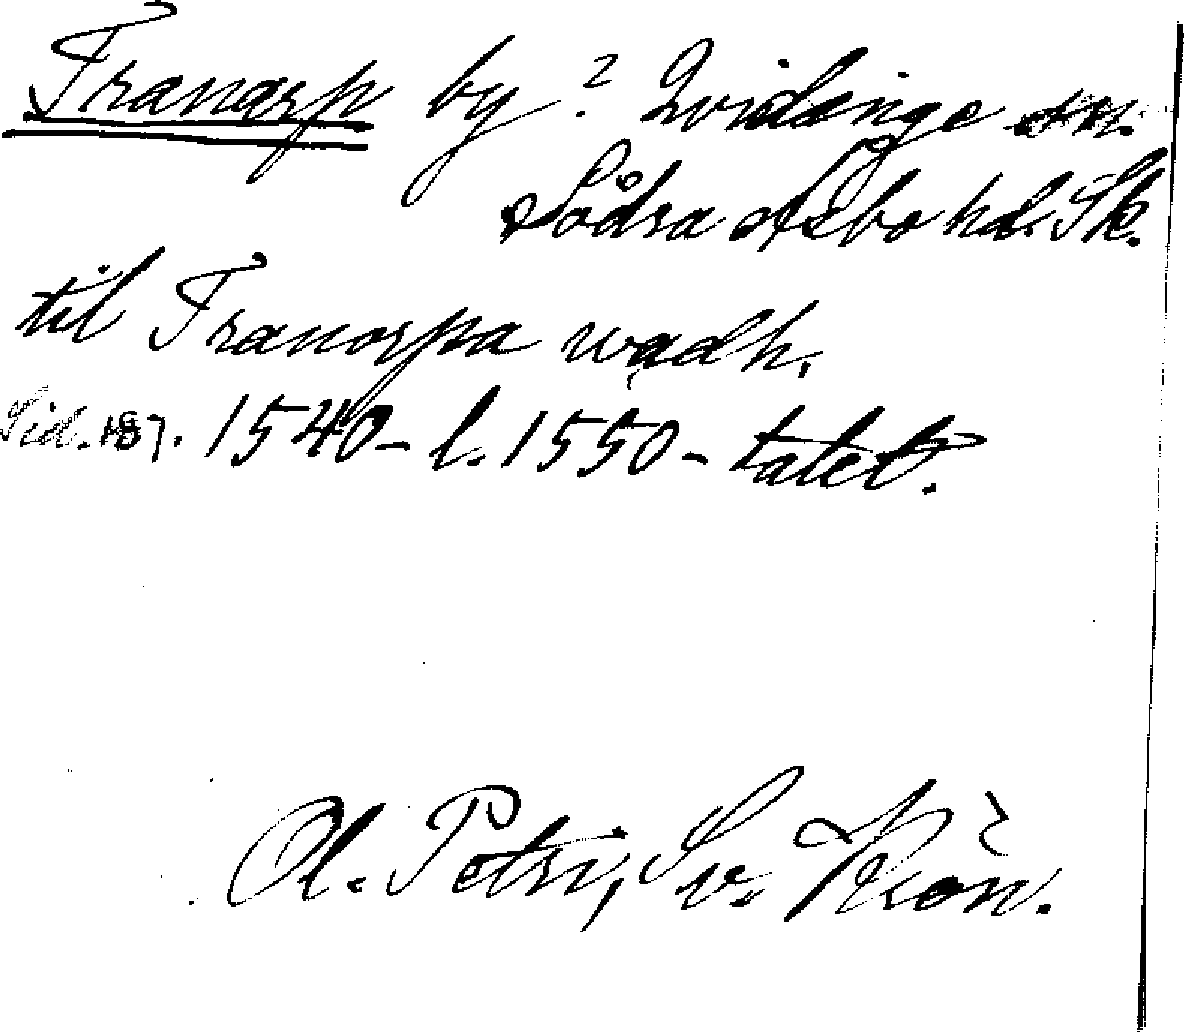 Tranarp by? Qvidinge sn.
Södra Åsbo hd. Sk.
til Tranorpa wadh.
Sid. 187. 1540- l. 1550-talet.
Ol. Petri, Sv. Krön.